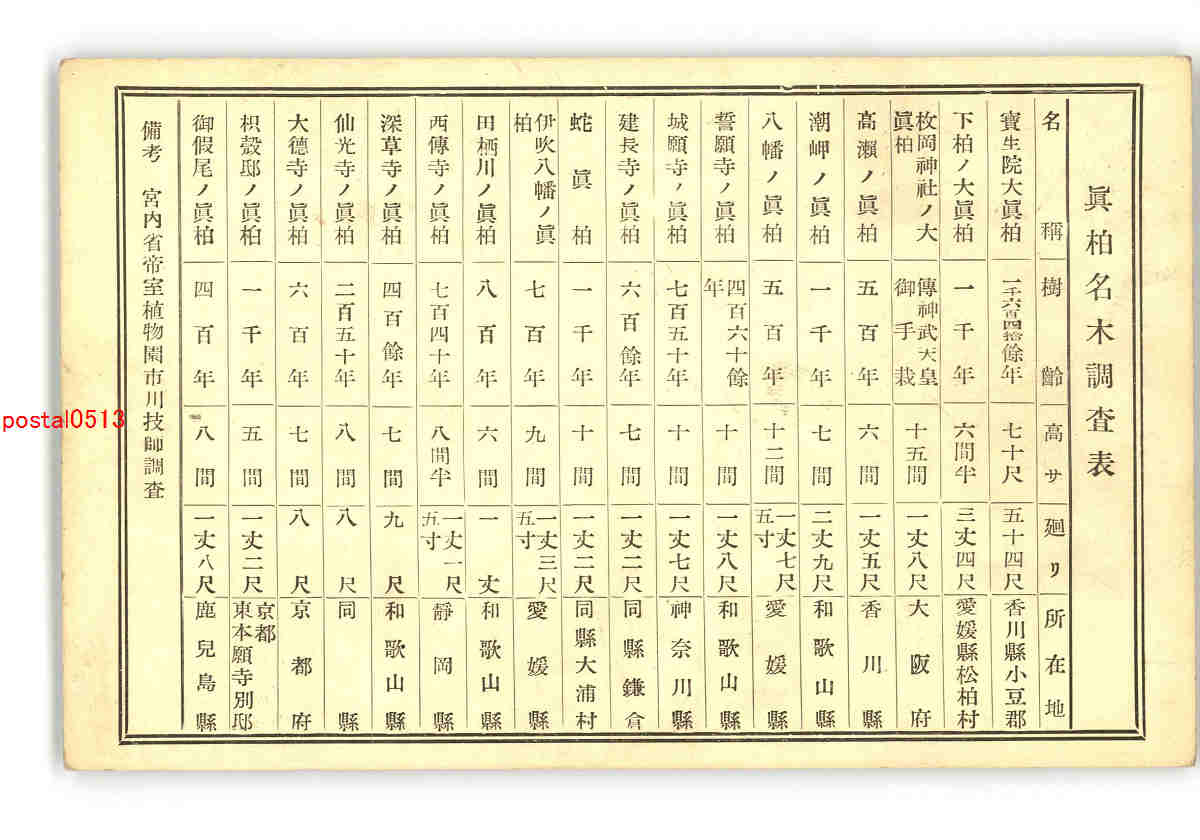 眞柏名木調査表
名稱 樹齡 高サ 廻リ 所在地
寶生院大眞柏 一千六百四拾餘年 七十尺 五十四尺 香川縣小豆郡
下柏ノ大眞柏 一千年 六間半 三丈四尺 愛媛縣松柏村
枚岡神社ノ大眞柏 傳神武天皇御手栽 十五間 一丈八尺 大阪府
高瀨ノ眞柏 五百年 六間 一丈五尺 香川縣
潮岬ノ眞柏 一千年 七間 二丈九尺 和歌山縣
八幡ノ眞柏 五百年 十二間 一丈七尺五寸 愛媛縣
誓願寺ノ眞柏 四百六十餘年 十間 一丈八尺 和歌山縣
城願寺ノ眞柏 七百五十年 十間 一丈七尺 神奈川縣
建長寺ノ眞柏 六百餘年 七間 一丈二尺 同縣鎌倉
蛇眞柏 一千年 十間 一丈二尺 同縣大浦村
伊吹八幡ノ眞柏 七百年 九間 一丈三尺五寸 愛媛縣
田栖川ノ眞柏 八百年 六間 一丈 和歌山縣
西傳寺ノ眞柏 七百四十年 八間半 一丈一尺五寸 靜岡縣
深草寺ノ眞柏 四百餘年 七間 九尺 和歌山縣
仙光寺ノ眞柏 二百五十年 八間 八尺 同縣
大德寺ノ眞柏 六百年 七間 八尺 京都府
枳殼邸ノ眞柏 一千年 五間 一丈二尺 京都東本願寺別邸
御假尾ノ眞柏 四百年 八間 一丈八尺 鹿兒島縣
備考 宮内省帝室植物園市川技師調査
postal0513